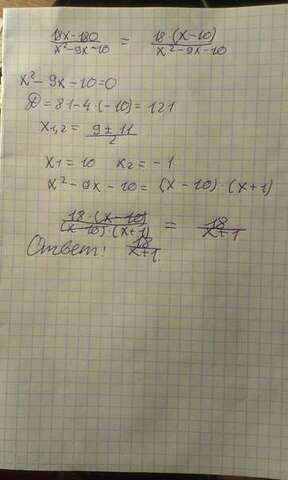 18x-180 / x²-9x-10 = 18·(x-10) / x²-9x-10
x²-9x-10=0
D=81-4·(-10)=121
x1,2 = 9±11 / 2
x1=10 x2=-1
x²-9x-10=(x-10)·(x+1)
18·(x-10) / (x-10)·(x+1) = 18 / x+1
Ответ: 18 / x+1.